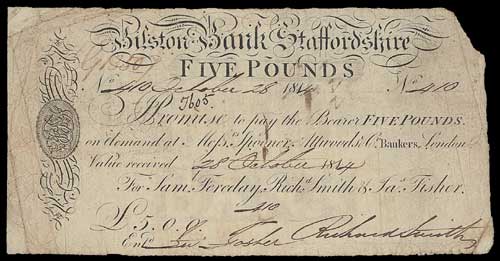 Bilston Bank Staffordshire
FIVE POUNDS
No. 410 October 28 1814 No. 410
7605.
I Promise to pay the Bearer FIVE POUNDS.
on demand at Messrs. Spooner, Attwoods & Co. Bankers, London
Value received 28 October 1814
For Saml. Fereday, Richd. Smith & Jas. Fisher.
410
£5.0.0.
Entd. Fosher Richard Smith